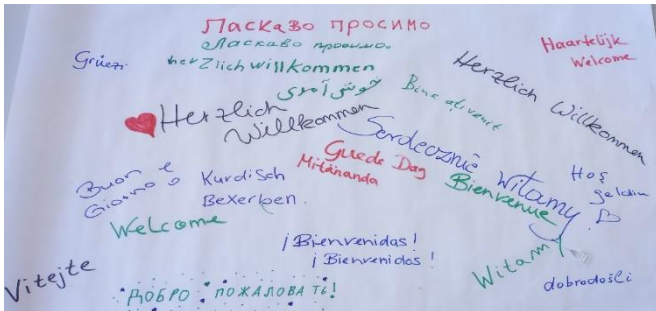 Ласкаво просимо
Ласкаво просимо.
Grüezi
herzlich willkommen
Haartelijk
Welcome
Herzlich Willkommen
خوش آمدی
Bine ati venit
Herzlich
Willkommen
Serdecznie witamy
Guede Dag
Mitenanda
Bienvenue
Hoş
geldin
Buon
Giorno
Kurdisch
Bexerhen.
Welcome
¡Bienvenidas!
¡Bienvenidos!
Witamy
Vitejte
ДОБРО ПОЖАЛОВАТЬ!
dobrodošli